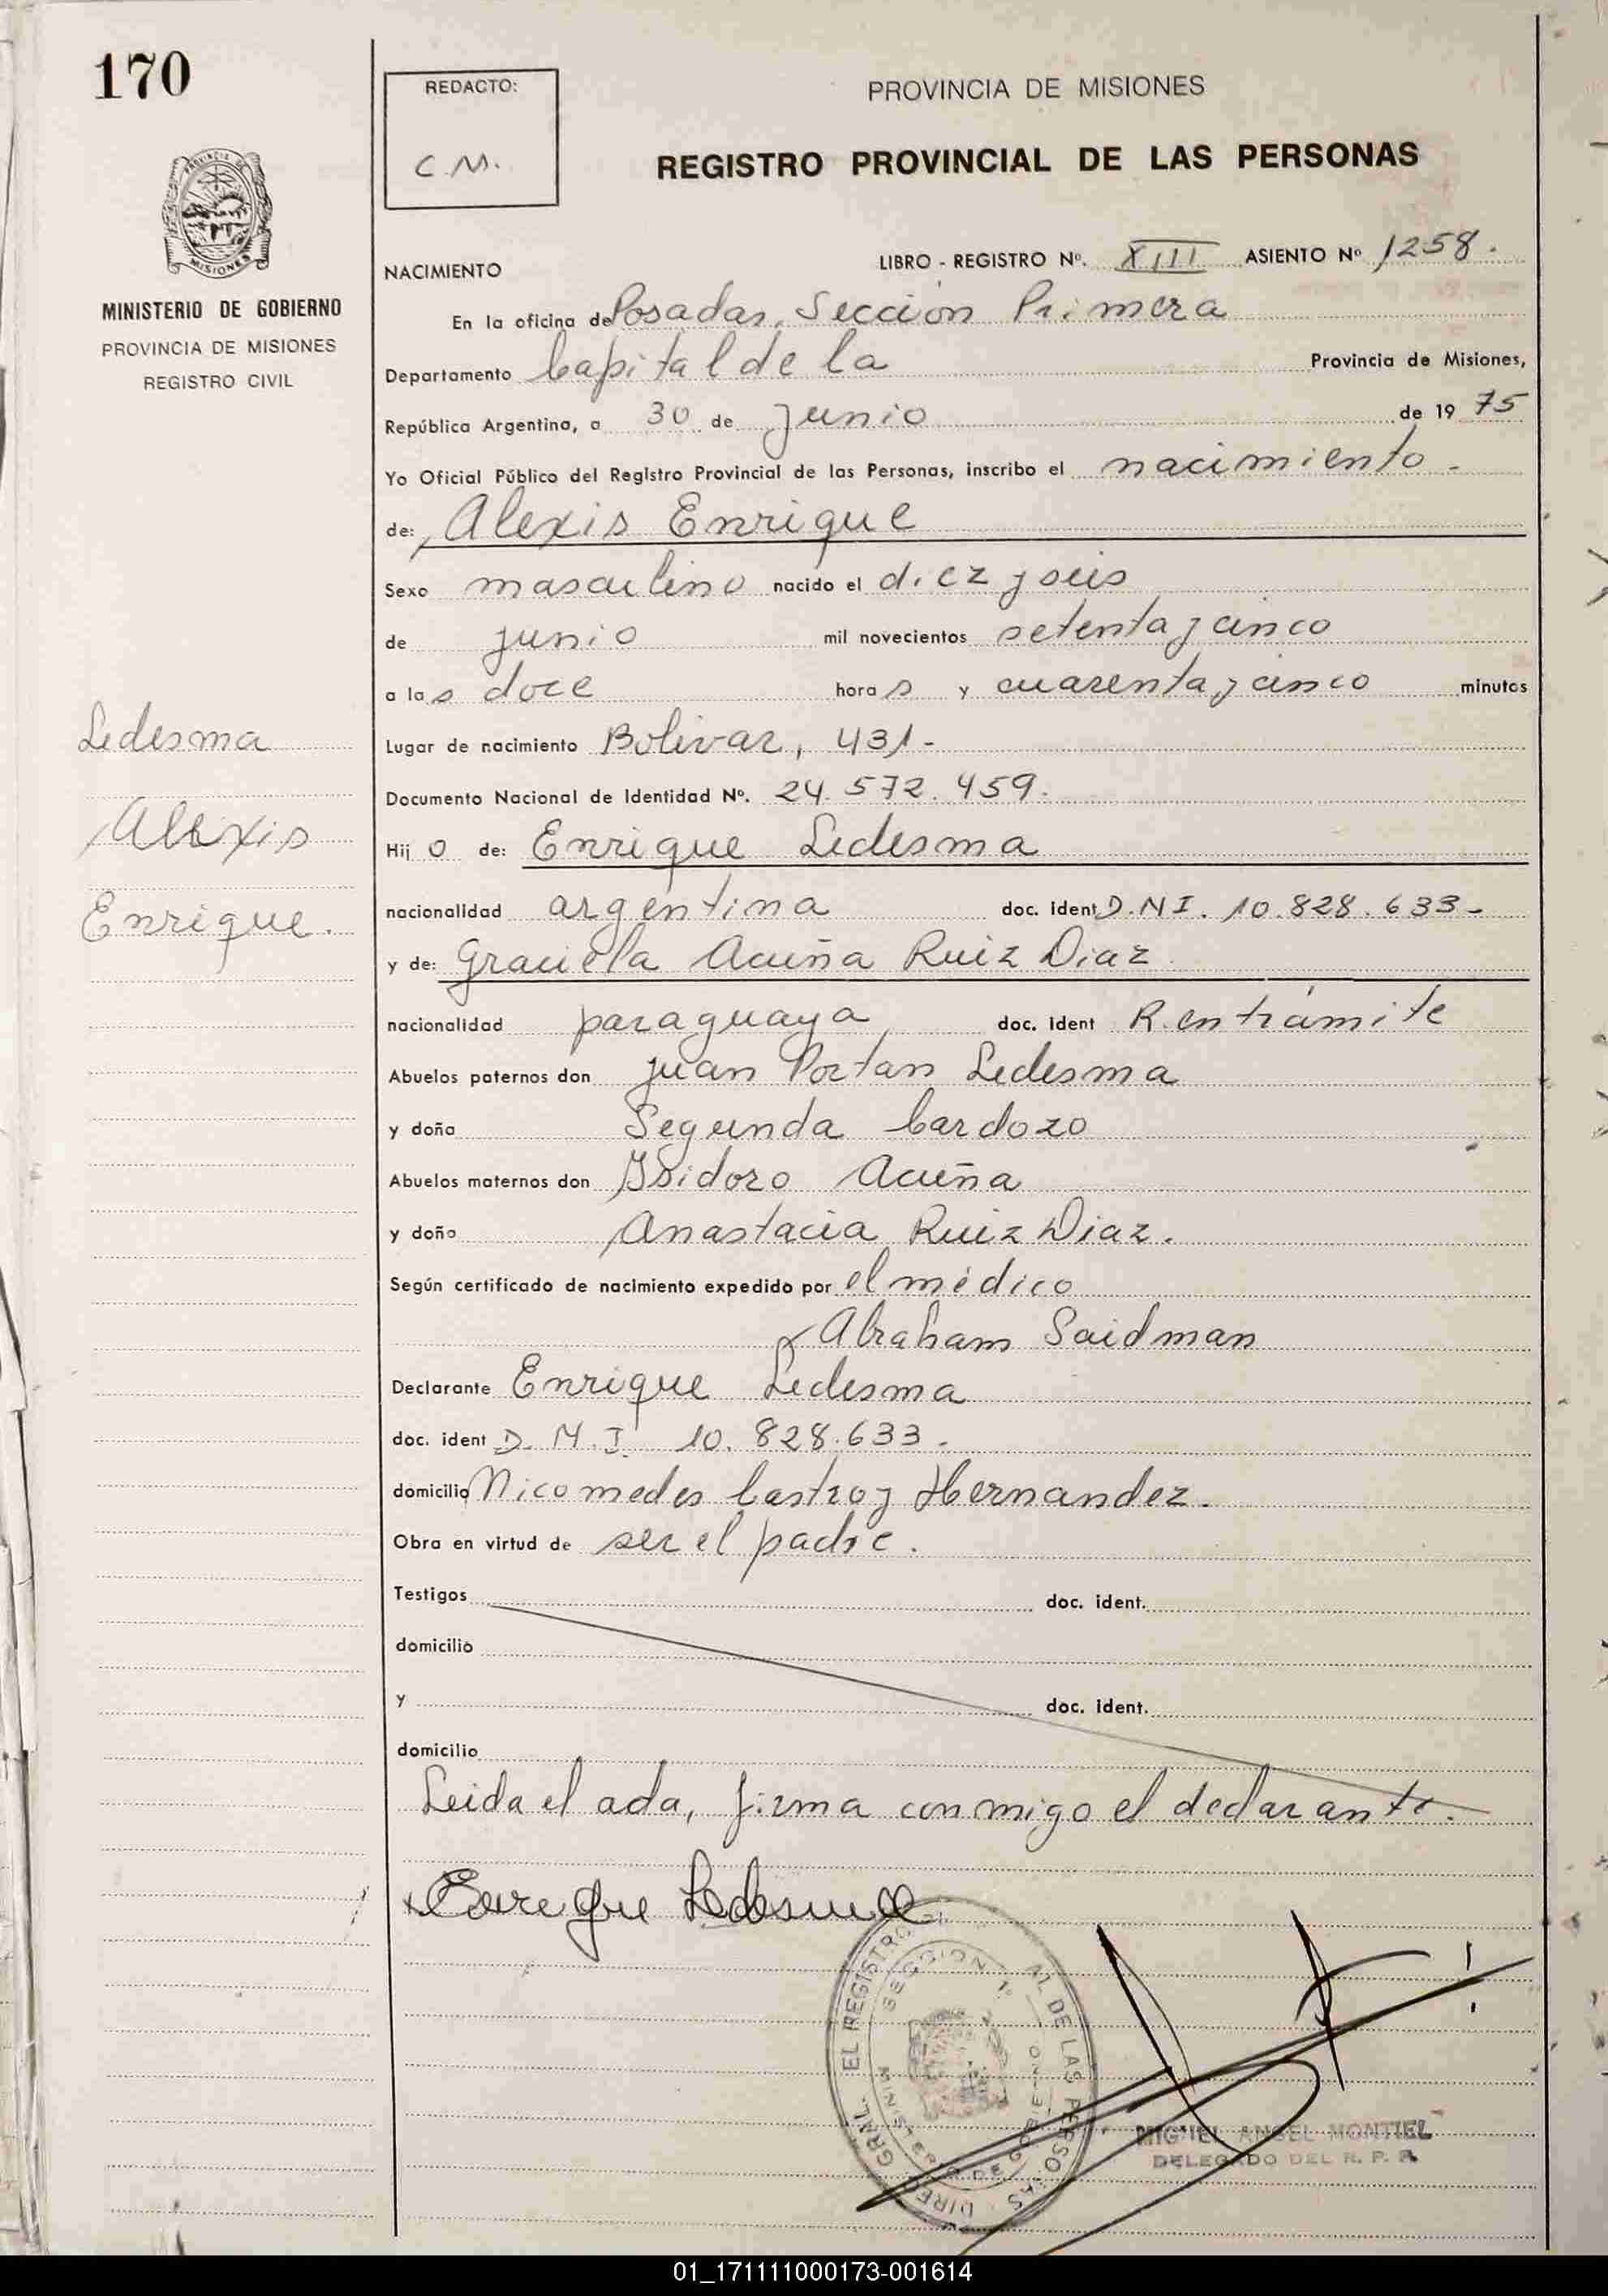 170
REDACTO:
C.M.
PROVINCIA DE MISIONES
REGISTRO PROVINCIAL DE LAS PERSONAS
MINISTERIO DE GOBIERNO
PROVINCIA DE MISIONES
REGISTRO CIVIL
NACIMIENTO
LIBRO - REGISTRO Nº. XIII ASIENTO Nº 1258.
En la oficina de Posadas, Sección Primera
Departamento Capital de la Provincia de Misiones,
República Argentina, a 30 de junio de 19 75
Yo Oficial Público del Registro Provincial de las Personas, inscribo el nacimiento.
de: Alexis Enrique
Sexo masculino nacido el diez y seis
de junio mil novecientos setenta y cinco
a las doce horas y cuarenta y cinco minutos
Ledesma
Alexis
Enrique.
Lugar de nacimiento Bolivar, 431-
Documento Nacional de Identidad Nº. 24.572.459.
Hijo de: Enrique Ledesma
nacionalidad argentina doc. ident D.N.I. 10.828.633-
y de: Graciela Acuña Ruiz Diaz
nacionalidad paraguaya doc. ident R. en trámite
Abuelos paternos don Juan Ledesma
y doña Segunda Cardozo
Abuelos maternos don Isidoro Acuña
y doña Anastacia Ruiz Diaz.
Según certificado de nacimiento expedido por el médico
Abraham Saidman
Declarante Enrique Ledesma
doc. ident D.N.I. 10.828.633.
domicilio Nicomedes Castro y Hernandez.
Obra en virtud de ser el padre.
Testigos doc. ident.
domicilio
y doc. ident.
domicilio
Leida el acta, firma conmigo el declarante.
Enrique Ledesma
DIRE GRAL. EL REGISTRO AL DE LAS PERSONAS
SECCION 1º
MINISTERIO DE GOBIERNO
MIGUEL ANGEL MONTIEL
DELEGADO DEL R. P. P.
01_171111000173-001614